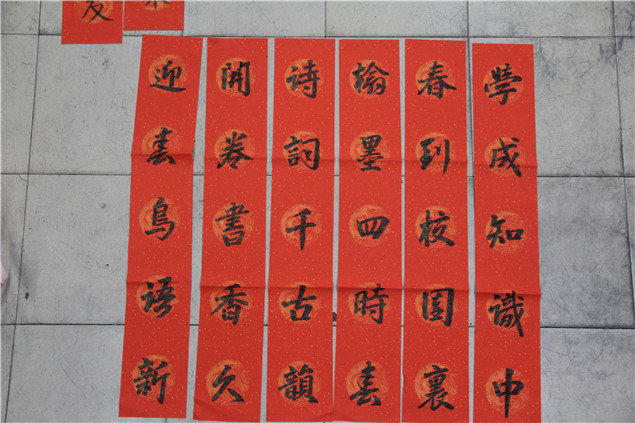 學成知識中
春到校園裏
翰墨四時春
詩詞千古韻
開卷書香久
迎春鳥語新